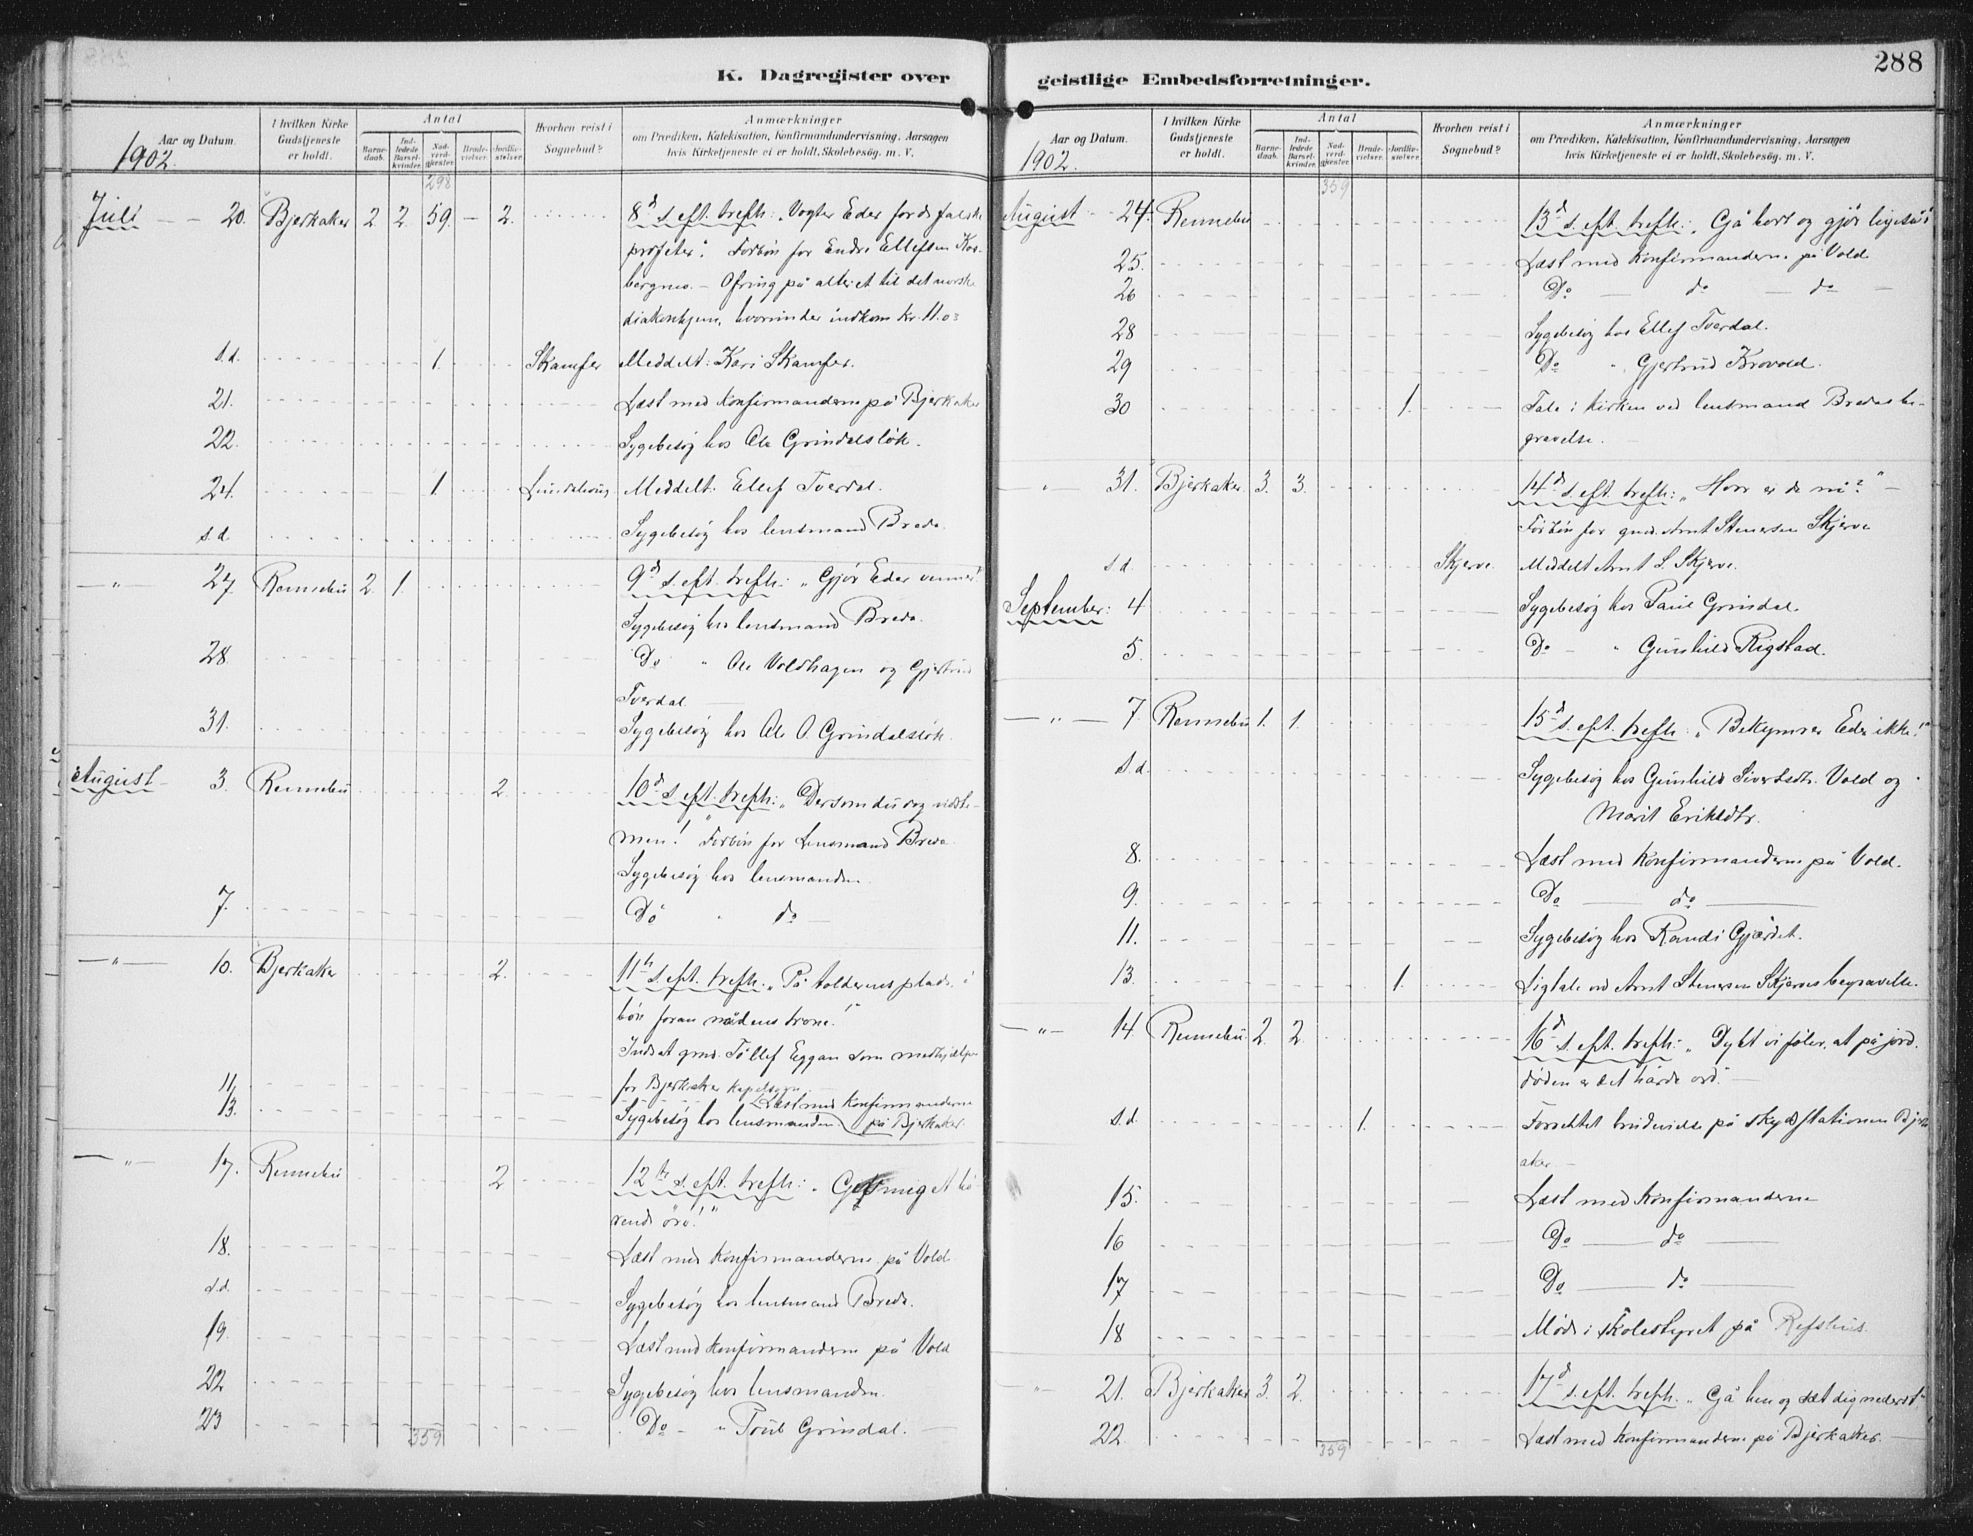 K. Dagregister over
Aar og Datum. I hvilken Kirke Gudstjeneste er holdt. Antal Barnedaab. Indledede Barselkvinder. Nadverdgjester. Brudevielser. Jordfæstelser. Hvorhen reist i Sognebud? Anmærkninger om Prædiken, Katekisation, Konfirmandundervisning, Aarsagen hvis Kirketjeneste ei er holdt, Skolebesøg. m. V.
1902.
298
Juli — — 20. Bjerkaker 2. 2. 59. — 2. 8d s. eft. trefh.: "Vogter Eder for de falske
profeter." Forbøn for Endre Ellefsen
Ofring på alteret til det norske
diakonhjem, hvorunder indkom kr. 11.03
s.d. 1. Skamfer Meddelt: Kari Skamfer.
21. Læst med konfirmanderne på Bjerkaker
22. Sygebesøg hos Ole Grindalsløk.
24. 1 Meddelt: Ellef Tverdal.
s.d Sygebesøg hos lensmand Brede.
— " 27. Rennebu 2. 1. 9d s. eft. trefh.: "Gjør Eder venner!"
Sygebesøg hos lensmand Brede.
28. Do " Ole Voldhagen og Gjertrud
Tverdal. —
31. Sygebesøg hos Ole O. Grindalsløk.
August 3. Rennebu 2. 10d s. eft. trefh.: "Dersom du dog vidste —
men!" Forbøn for Lensmand Brede.
Sygebesøg hos lensmanden.
7. Do " do —
— " — 10. Bjerkaker 2. 11te s. eft. trefh.: "På tolderens plads, i
bøn foran nådens trone!"
Indsat gmd. Tøllef Eggan som medhjælper
for Bjerkaker kapelsogn.
11. Læst med konfirmanderne
på Bjerkaker.
13. Sygebesøg hos lensmanden
— " — 17. Rennebu 2 12te s. eft. trefh.: "Gef mig et hø-
rende øre!"
18. Læst med konfirmanderne på Vold
s.d. Sygebesøg hos lensmand Brede.
19. Læst med konfirmanderne på Vold
22 Sygebesøg hos lensmanden.
23 Do — " Grindal. —
359
geistlige Embedsforretninger.
288
Aar og Datum. I hvilken Kirke Gudstjeneste er holdt. Antal Barnedaab. Indledede Barselkvinder. Nadverdgjester. Brudevielser. Jordfæstelser. Hvorhen reist i Sognebud? Anmærkninger om Prædiken, Katekisation, Konfirmandundervisning, Aarsagen hvis Kirketjeneste ei er holdt, Skolebesøg. m. V.
1902.
359
August 24. Rennebu 13d s. eft. trefh.: "Gå bort og gjør ligeså!"
25. Læst med konfirmanderne på Vold
26 Do — do — do —
28 Sygebesøg hos Ellef Tverdal.
29 Do " Gjertrud Krovold.
30 1. Tale i kirken ved lensmand Bredes be-
gravelse. —
— " 31. Bjerkaker 3. 3. 14d s. eft. trefh.: "Hvor er de ni?" —
Forbøn for gmd. Arnt Stenersen Skjerve
s.d. Skjerve. Meddelt Arnt S. Skjerve.
September: 4 Sygebesøg hos Paul Grindal.
5. Do — " Gunhild Rigstad.
— " — 7. Rennebu 1. 1. 15d s. eft. trefh.: "Bekymrer Eder ikke!"
s.d. Sygebesøg hos Gunhild Sivertsdtr. Vold og
Marit Eriksdtr.
8. Læst med konfirmanderne på Vold.
9. Do — do —
11. Sygebesøg hos Randi Gjærdet.
13. 1. Ligtale ved Arnt Stenersen Skjerves begravelse.
— " — 14 Rennebu 2. 2. 16d s. eft. trefh.: "Dybt vi føler, at på jord
døden er det hårde ord." —
s.d. 1. Forrettet brudevielse på skydsstationen Bjerk-
aker. —
15. Læst med konfirmanderne
16 Do — do —
17 Do — do —
18 Møde i skolestyret på Refshus.
— " 21. Bjerkaker 3. 2. 17d s. eft. trefh.: "Gå hen og sæt dig nederst!"
22. Læst med konfirmanderne på Bjerkaker. —
359